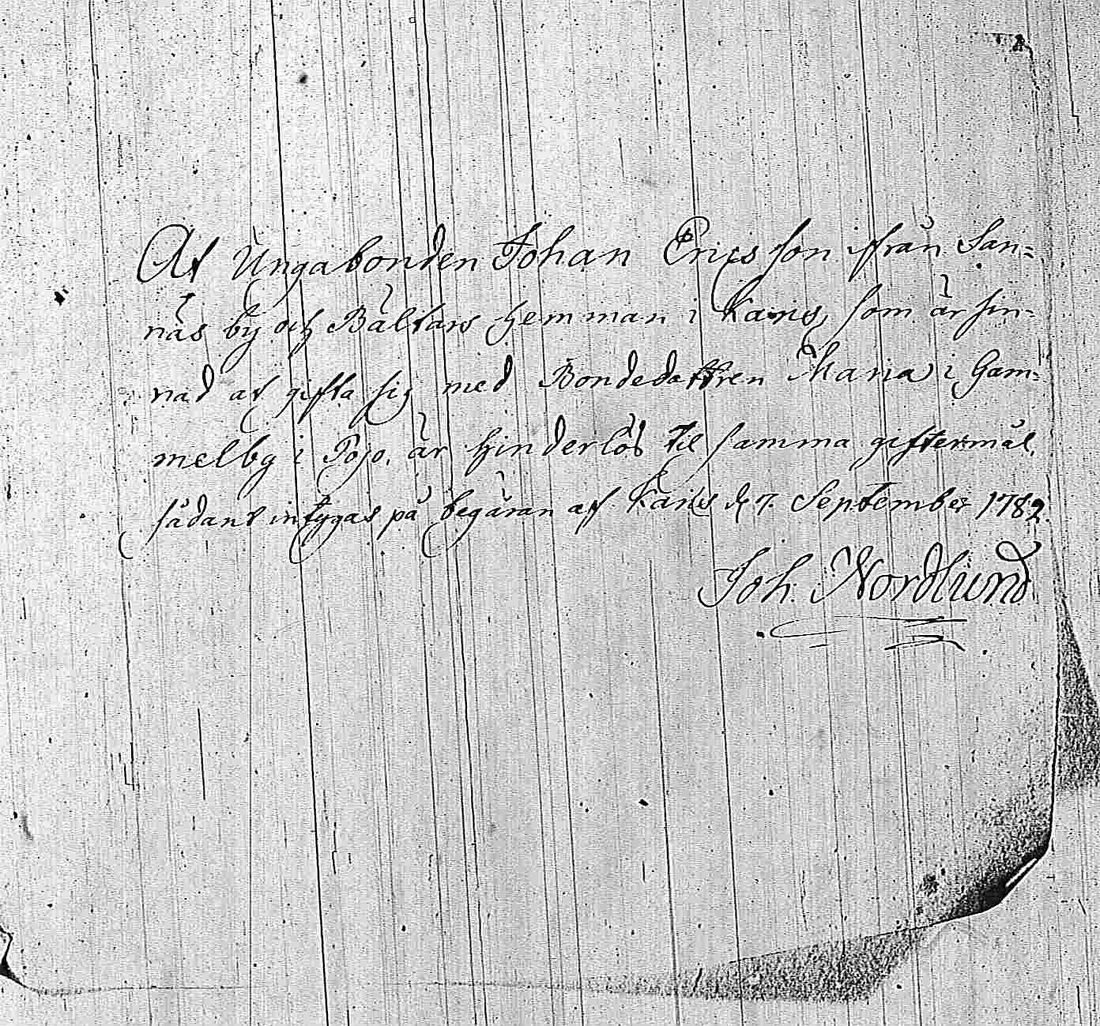 At Ungabonden Johan Ericsson ifrån San-
näs by och Bältars hemman i Karis, som är sin-
nad at gifta sig med Bondedottren Maria i Gam-
melby i Pojo, är hinderlös til samma giftermål,
sådant intygas på begäran af Karis d. 7. September 1782.
Joh. Nordlund